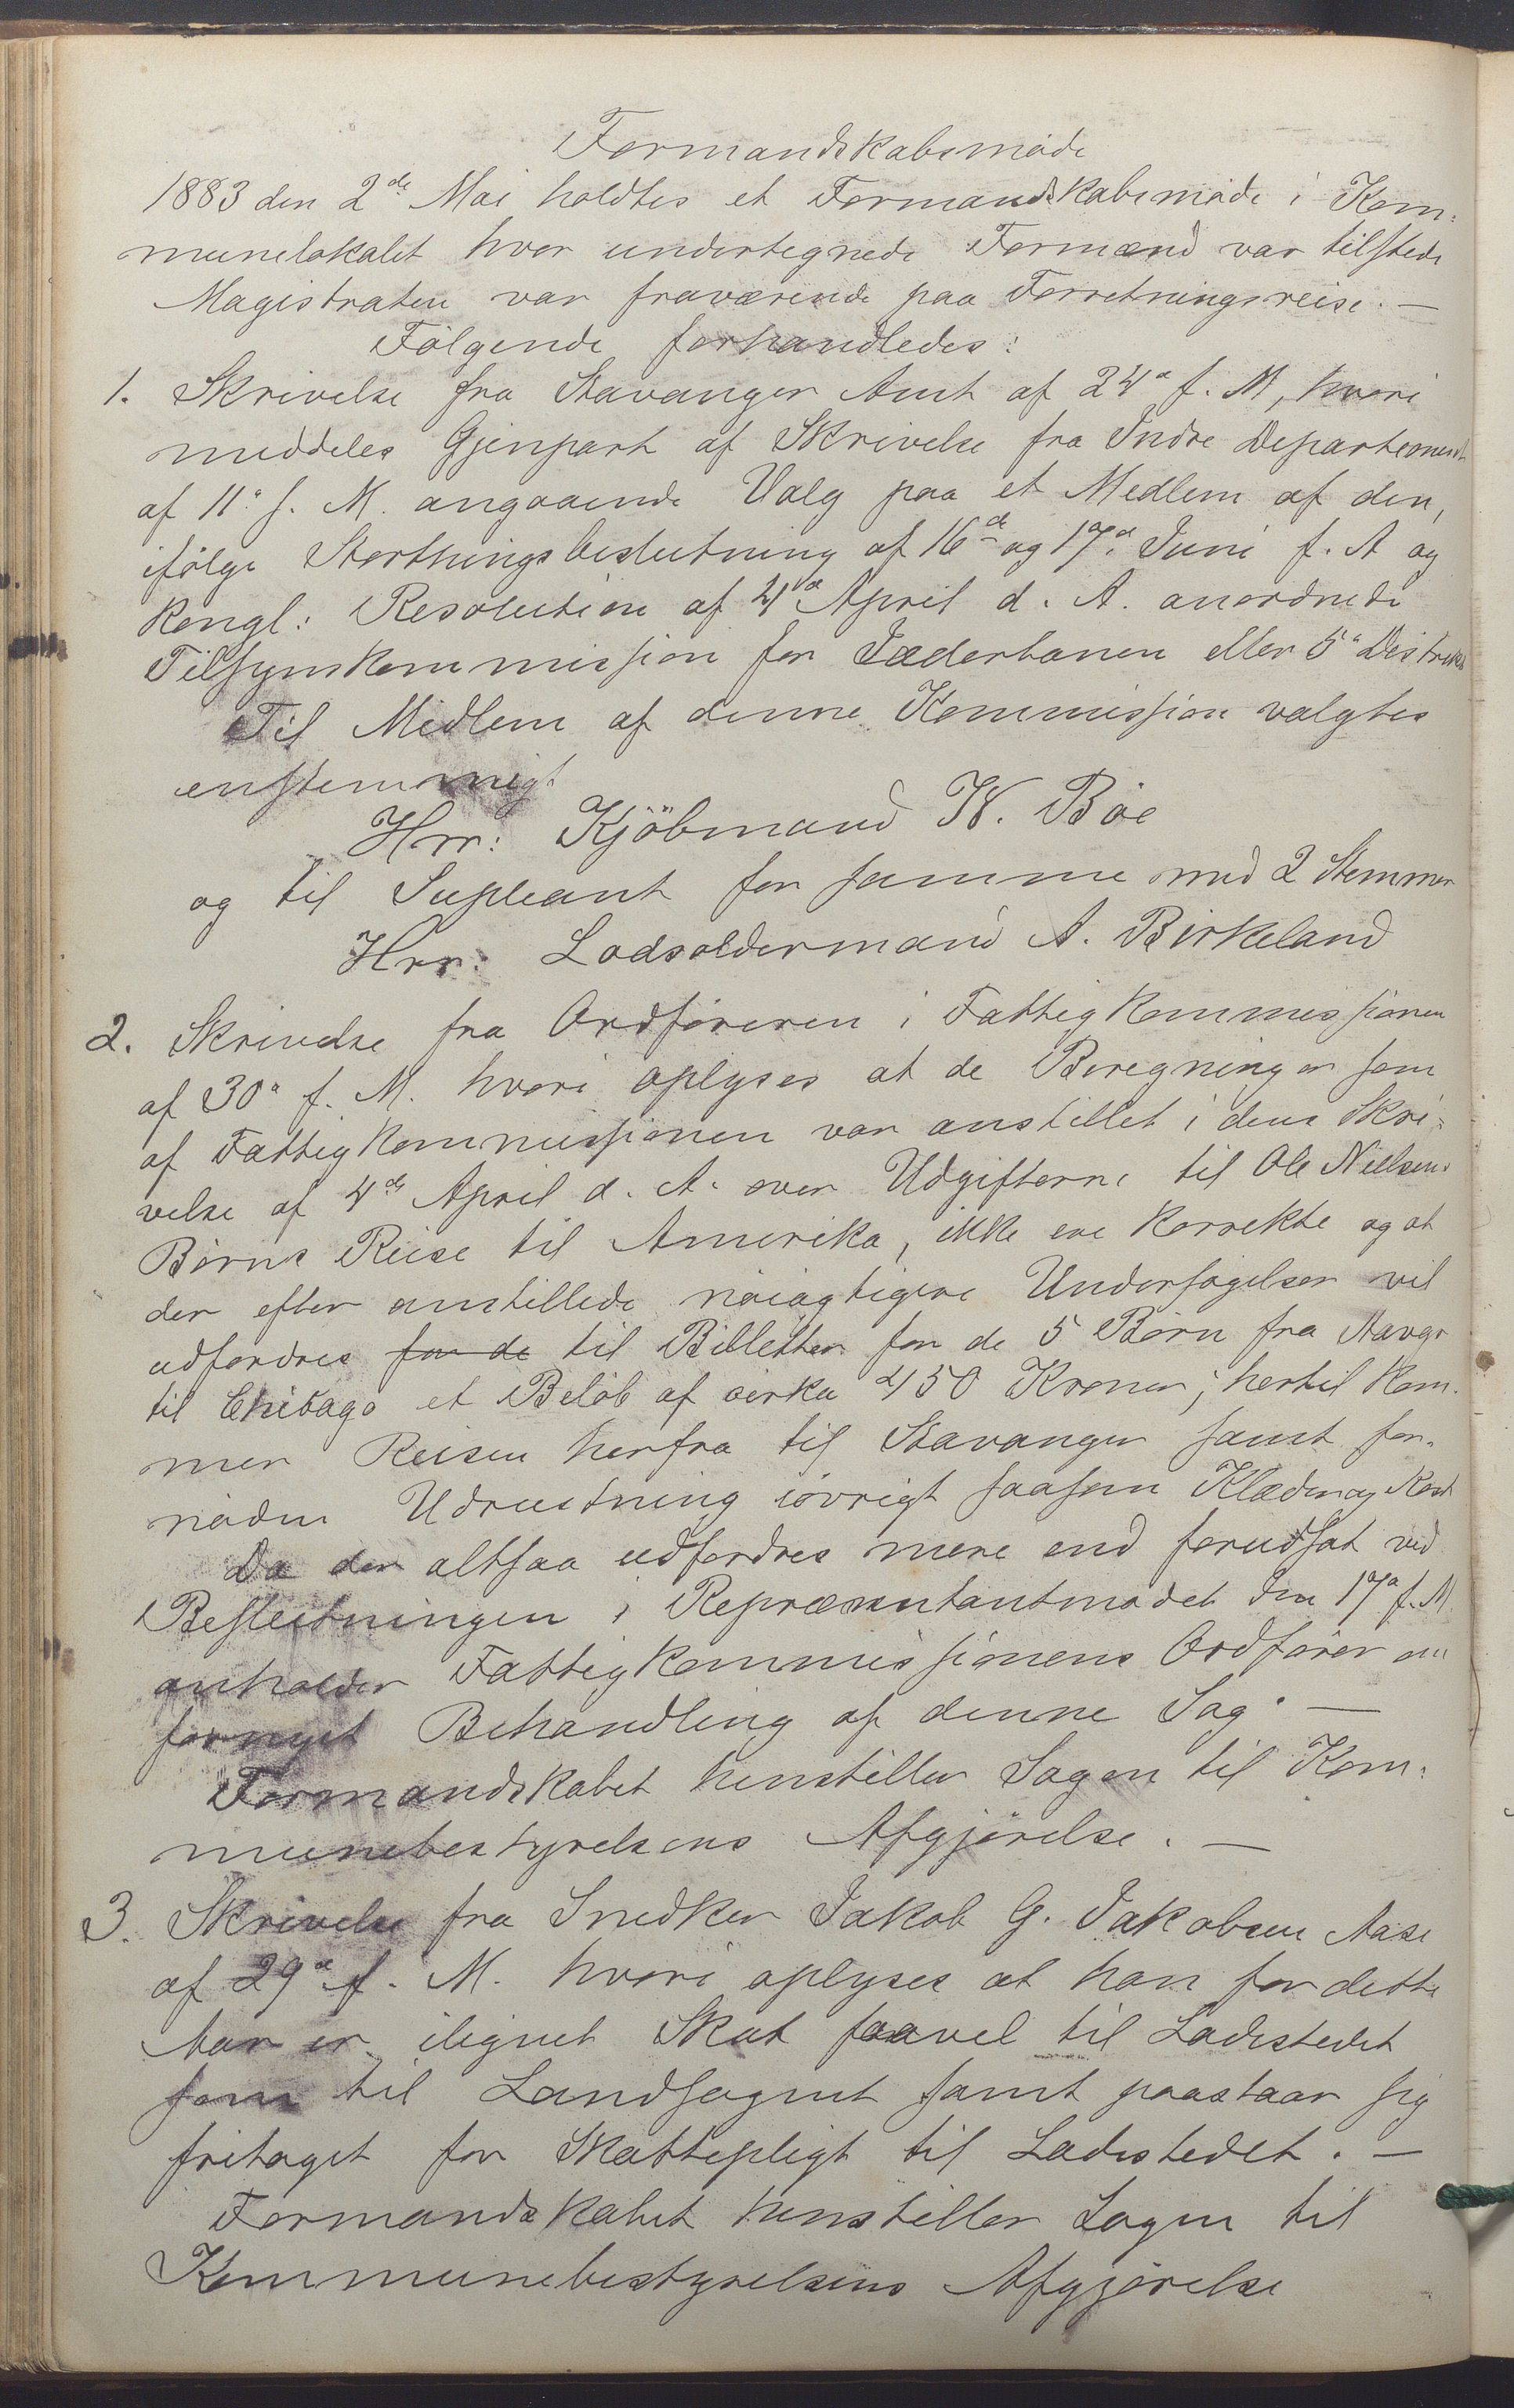 Formandskabsmøde
1883 den 2de Mai holdtes et Formandskabsmøde i Kom-
munelokalet hvor undertegnede Formænd var tilstede
Magistraten var fraværende paa Forretningsreise. —
Følgende forhandledes:
1. Skrivelse fra Stavanger Amt af 24de f. M, hvori
meddeles Gjenpart af Skrivelse fra Indre Departement
af 11te f. M. angaaende Valg paa et Medlem af den,
ifølge Storthingsbeslutning af 16de og 17de Juni f. A og
kongl: Resolution af 4de April d. A. anordnede
Tilsynskommission for Jæderbanen eller 5te Distrikt
Til Medlem af denne Kommission valgtes
enstemmigt
Hrr: Kjöbmand W. Böe
og til Supleant for samme med 2 Stemmer
Hrr: Lodsoldermand A. Birkeland
2. Skrivelse fra Ordføreren i Fattigkommissionen
af 30te f. M. hvori oplyses at de Beregninger som
af Fattigkommissionen var anstillet i dens Skri-
velse af 4de April d. A. over Udgifterne til Ole Nielsens
Børns Reise til Amerika, ikke ere korrekte og at
der efter anstillede nøiagtigere Undersøgelser vil
udfordres for de til Billetter for de 5 Børn fra Stavgr
til Chicago et Beløb af cirka 450 Kroner; hertil kom-
mer Reisen herfra til Stavanger samt for-
nøden Udrustning iøvrigt saasom Klæder og Kost
Da der altsaa udfordres mere end forudsat ved
Beslutningen i Repræsentantmødet den 17de f. M
anholder Fattigkommissionens Ordfører om
fornyet Behandling af denne Sag. —
Formandskabet henstiller Sagen til Kom-
munebestyrelsens Afgjørelse. —
3. Skrivelse fra Snedker Jakob G. Jakobsen Aase
af 29de f. M. hvori oplyses at han for dette
Aar er ilignet Skat saavel til Ladestedet
som til Landsognet samt paastaar sig
fritaget for Skattepligt til Ladestedet. —
Formandskabet henstiller Sagen til
Kommunebestyrelsens Afgjørelse